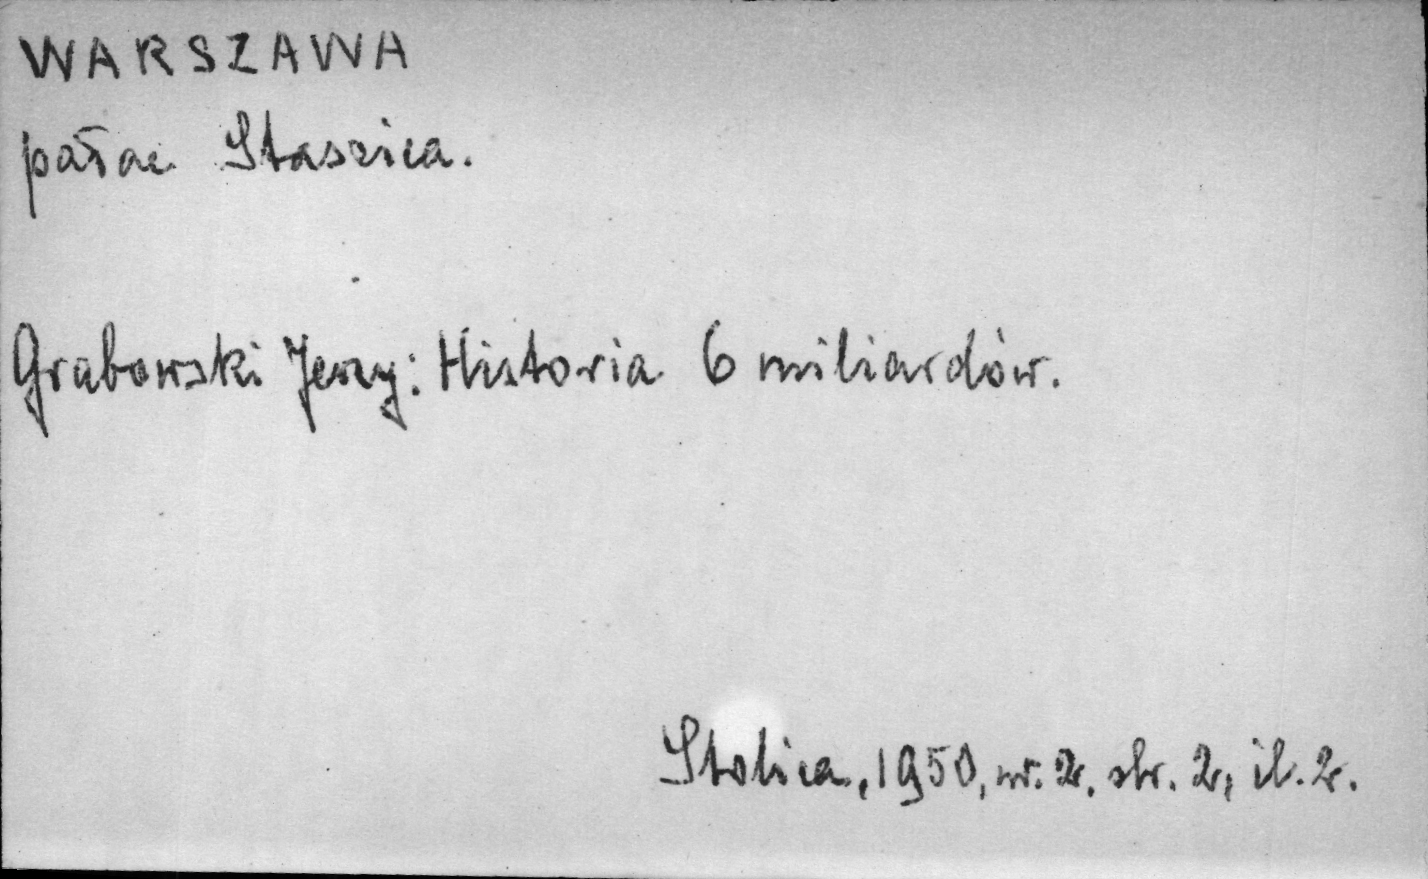 WARSZAWA
pałac Staszica.
Grabowski Jerzy: Historia 6 miliardów.
Stolica, 1950, nr. 2, str. 2, il. 2.